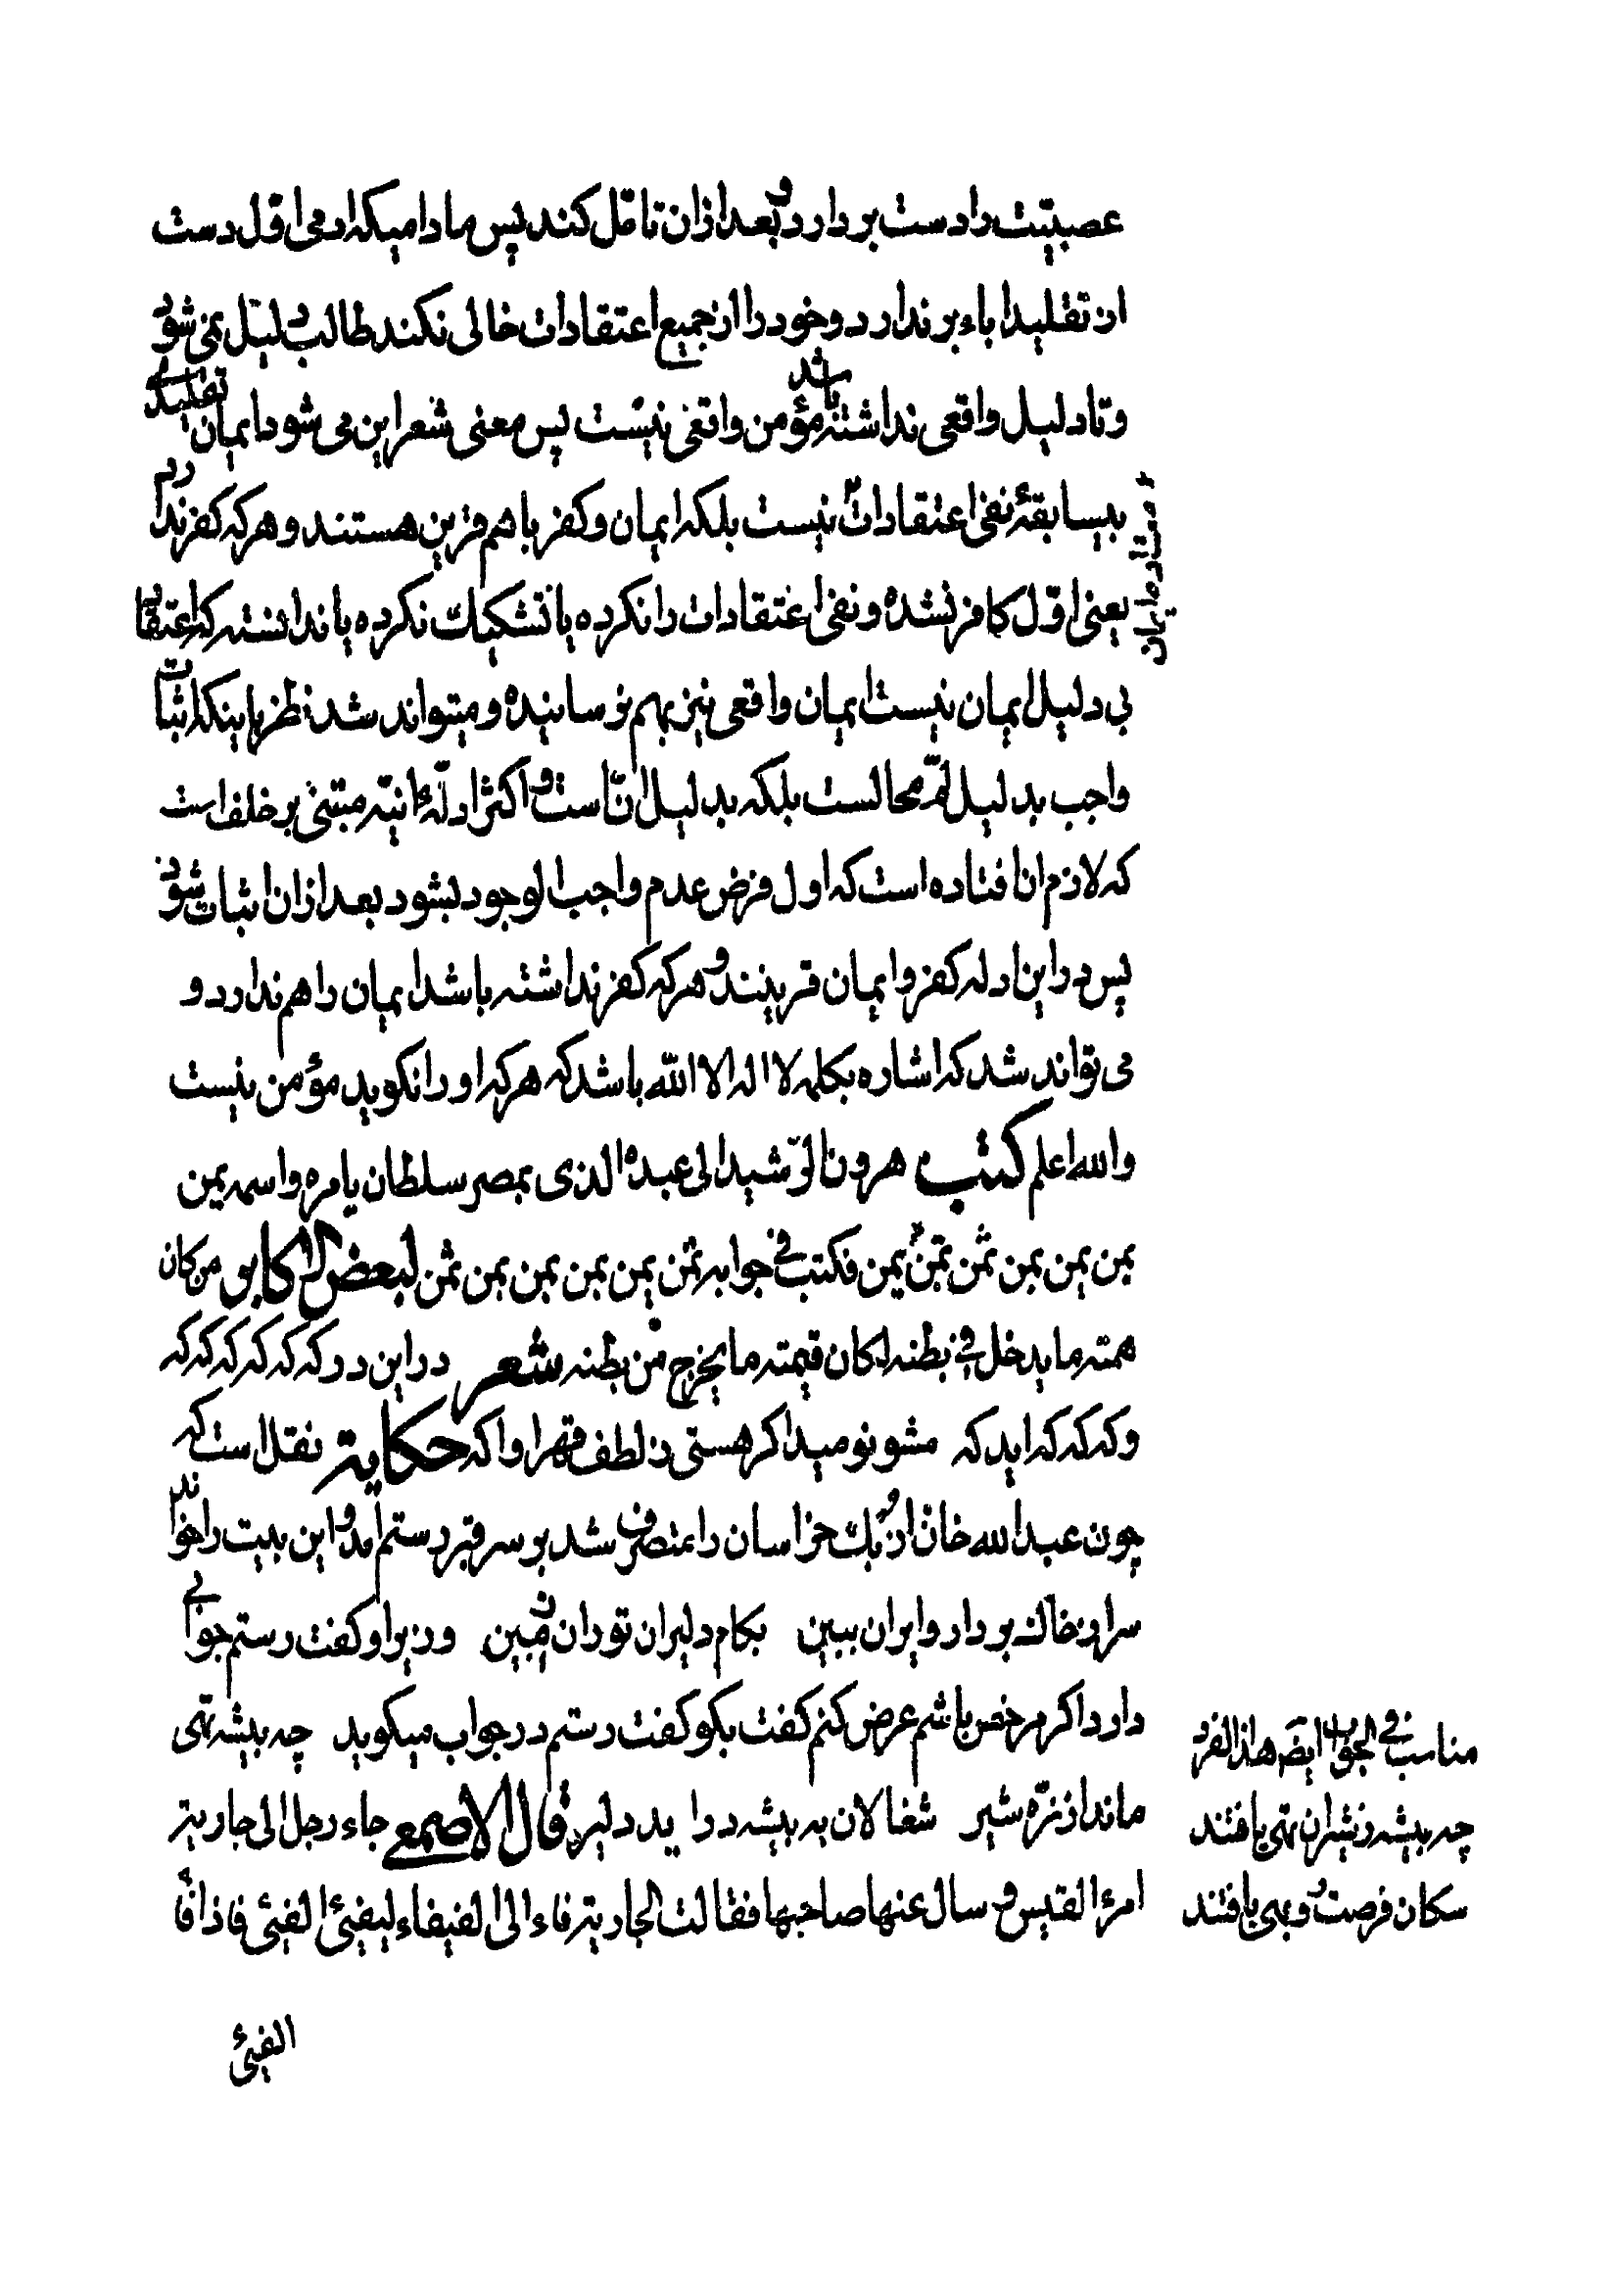 عصبیّت را دست بردارد و بعد از ان تامّل کند پس مادامیکه ادمی اوّل دست
از تقلید اباء بر ندارد و خود را از جمیع اعتقادات خالی نکند طالب دلیل نمی شود
و تا دلیل واقعی نداشته باشد مؤمن واقعی نیست پس معنی شعر این می شود ایمان تقلیدی
بیسابقهٔ نفی اعتقادات نیست بلکه ایمان و کفر باهم قرین هستند و هر که کفر ندارد
یعنی اوّل کافر نشده و نفی اعتقادات را نکرده یا تشکیک نکرده یا ندانسته که اعتقاد
بی دلیل ایمان نیست ایمان واقعی نیز بهم نرسانیده و میتواند شد نظر باینکه اثبات
واجب بدلیل لمّ محالست بلکه بدلیل انّ است و اکثر ادلّهٔ انیّه مبتنی بر خلف است
که لازم ان افتاده است که اول فرض عدم واجب الوجود بشود بعد از ان اثبات شود
پس در این ادله کفر و ایمان قرینند و هر که کفر نداشته باشد ایمان را هم ندارد و
می تواند شد که اشاره بکلمه لا اله الا الله باشد که هر که او را نگوید مؤمن نیست
والله اعلم کتب هرون الرّشید الی عبده الذی بمصر سلطان یامره واسمه یمن
یمن یمن یمن ثمن یمن فکتب فی جوابه ثمن یمن یمن یمن یمن یمن ثمن لبعض الاکابر من کان
همته ما یدخل فی بطنه کان قیمته ما یخرج من بطنه شعر در این در و که که که که که که
و که که که اید که مشو نومید اگر هستی ز لطف و قهر او اکه حکایة نقل است که
چون عبد الله خان اوزبک خراسان را متصرف شد بر سر قبر رستم امد و این بیت را خواند
سر از خاک بردار و ایران ببین بکام دلیران توران زمین وزیر او گفت رستم جوابی
دارد اگر مرخص باشم عرض کنم گفت بگو گفت رستم در جواب میگوید چه بیشه تهی
ماند از نرّه شیر شغالان به بیشه در اید دلیر قال الاصمعی جاء رجل الی جاریة
امرؤ القیس و سال عنها صاحبها فقالت الجاریة فاء الی الفیفاء لیفیئ الفیئ فاذا فاء
الفیئ
مناسب فی الجواب ایضَ هذا الفرد
چه بیشه ز شیران تهی یافتند
سکان فرصت و بهی یافتند